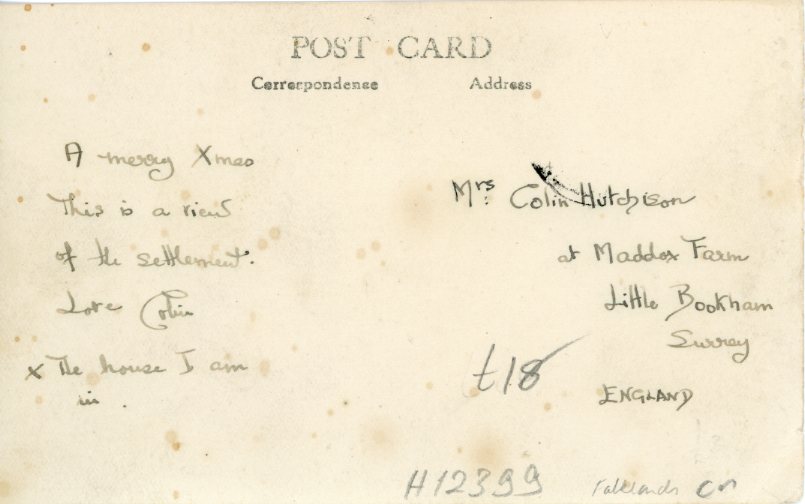 POST CARD
Correspondence
Address
A merry Xmas
This is a view
of the settlement.
Love Colin
x The house I am
in .
Mrs Colin Hutchison
at Maddox Farm
Little Bookham
Surrey
ENGLAND
£18
H12399
Falklands